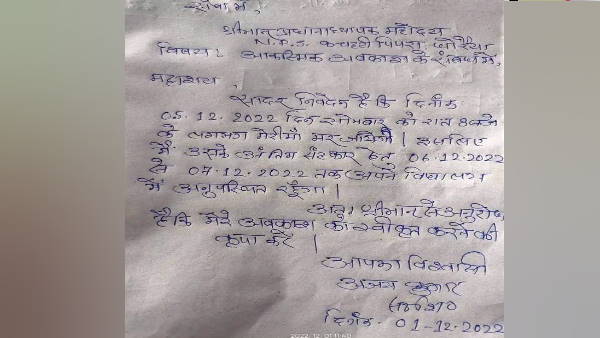 सेवा में,
श्रीमान् प्रधानाध्यापक महोदय
N.P.S. कचहरी पिपरा,
विषय: आकस्मिक अवकाश के संबंध में,
महाशय,
सादर निवेदन है कि दिनांक
05.12.2022 दिन सोमवार को रात 8 बजे
के लगभग मेरी माँ मर जायेगी। इसलिए
मैं उसके अंतिम संस्कार हेतु 06.12.2022
से 07.12.2022 तक अपने विद्यालय
में अनुपस्थित रहूँगा।
अतः श्रीमान् से अनुरोध
है कि मेरे अवकाश का स्वीकृत करने की
कृपा करें।
आपका विश्वासी
अजय कुमार
दिनांक- 01-12-2022